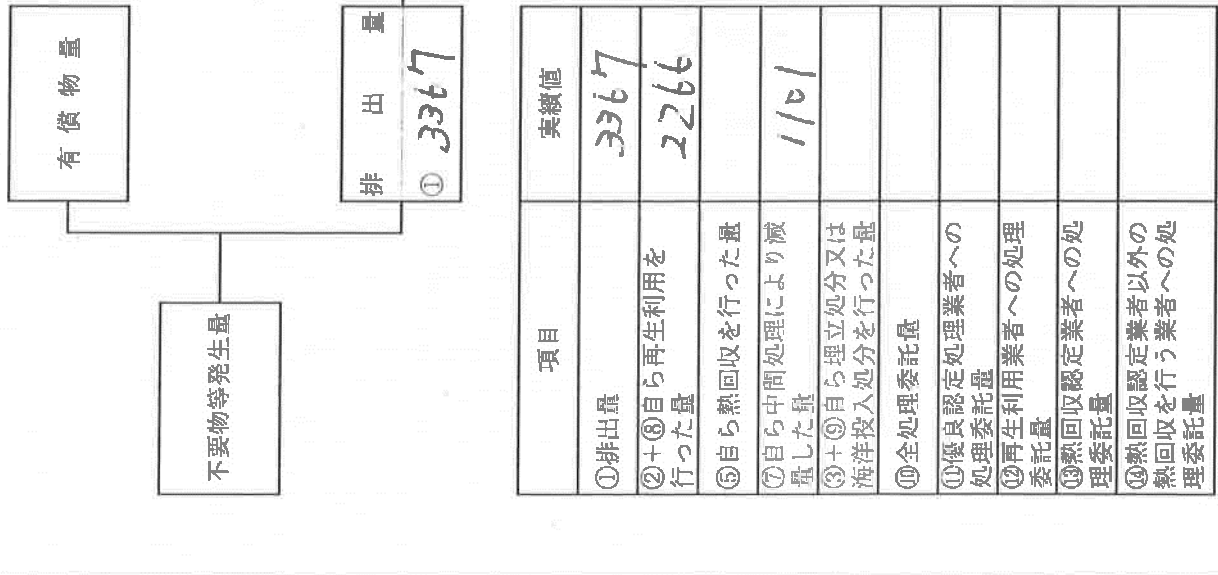 有償物量
排出量
① 3367
不要物等発生量
項目
実績値
①排出量
3367
②+⑧自ら再生利用を
行った量
2266
⑤自ら熱回収を行った量
⑦自ら中間処理により減
量した量
1101
③+⑨自ら埋立処分又は
海洋投入処分を行った量
⑩全処理委託量
⑪優良認定処理業者への
処理委託量
⑫再生利用業者への処理
委託量
⑬熱回収認定業者への処
理委託量
⑭熱回収認定業者以外の
熱回収を行う業者への処
理委託量